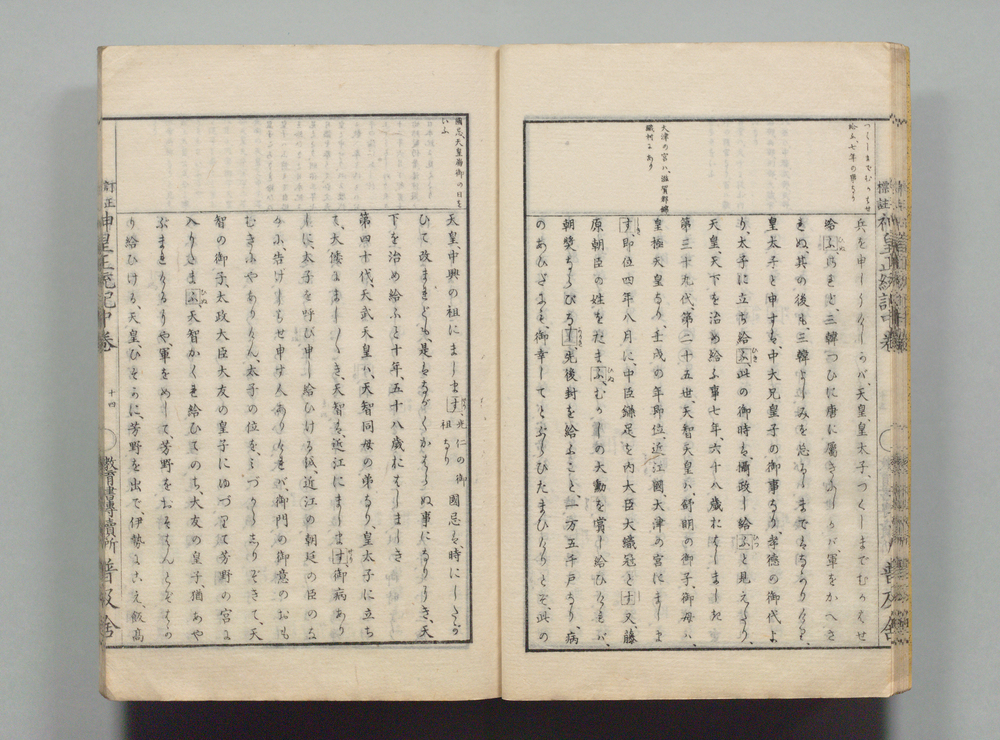 つくしまでむかはせ
給ふ、七年の
兵を申しうけしかバ、天皇皇太子、つくしまでむかはせ
給ふ。されど三韓つひに唐に屬きしかバ軍をかへさ
れぬ其の後も、三韓よしみを忘るゝまではなかりけり、
皇太子と申すは、中大兄皇子の御事なり孝德の御代よ
り太子に立ち給ふ、此の御時は攝政し給ふと見えたり、
天皇、天下を治め給ふ事七年、六十八歲おはしましき
大津の宮ハ、滋賀郡錦
織村にあり
第三十九代第二十五世天智天皇ハ舒明の御子、御母ハ、
皇極天皇なり、壬戌の年即位、近江國、大津の宮にまします、
即位四年八月に、中臣鎌足を內大臣大織冠とす、又藤
原朝臣の姓をたまふ、むかしの大勳を賞し給ひければ、
朝奬ならびなし、先後封を給ふこと、一万五千戸なり、病
のあひだにも、御幸してとぶらひたまひけりとぞ、此の
國忌、天皇崩御の日を
いふ
天皇中興の祖にまします、光仁の御祖なり 國忌は、時にしたが
ひて改まれども、是はながくかはらぬ事になりにき、天
下を治め給ふと十年五十八歲おはしましき
第四十代、天武天皇ハ、天智同母の弟なり、皇太子に立ち
て、大倭にましましき、天智は、近江にまします、御病あり
しに、太子を呼び申し給ひけるを、近江の朝廷の臣のな
かに、告げしらせ申す人ありければ、御門の御意のおも
むきにやありけん、太子の位を、みづからしりぞきて、天
智の御子、太政大臣大友の皇子にゆづりて芳野の宮に
入りたまふ、天智かくれ給ひてのち、大友の皇子、猶あや
ぶまれけるにや、軍をめして、芳野をおそはんとぞはか
り給ひける、天皇、ひそかに、芳野を出で、伊勢にこえ、飯高
標註神皇正統記中卷
普及舍
訂正神皇正統記中卷
十四
教育書專賣所 普及舍